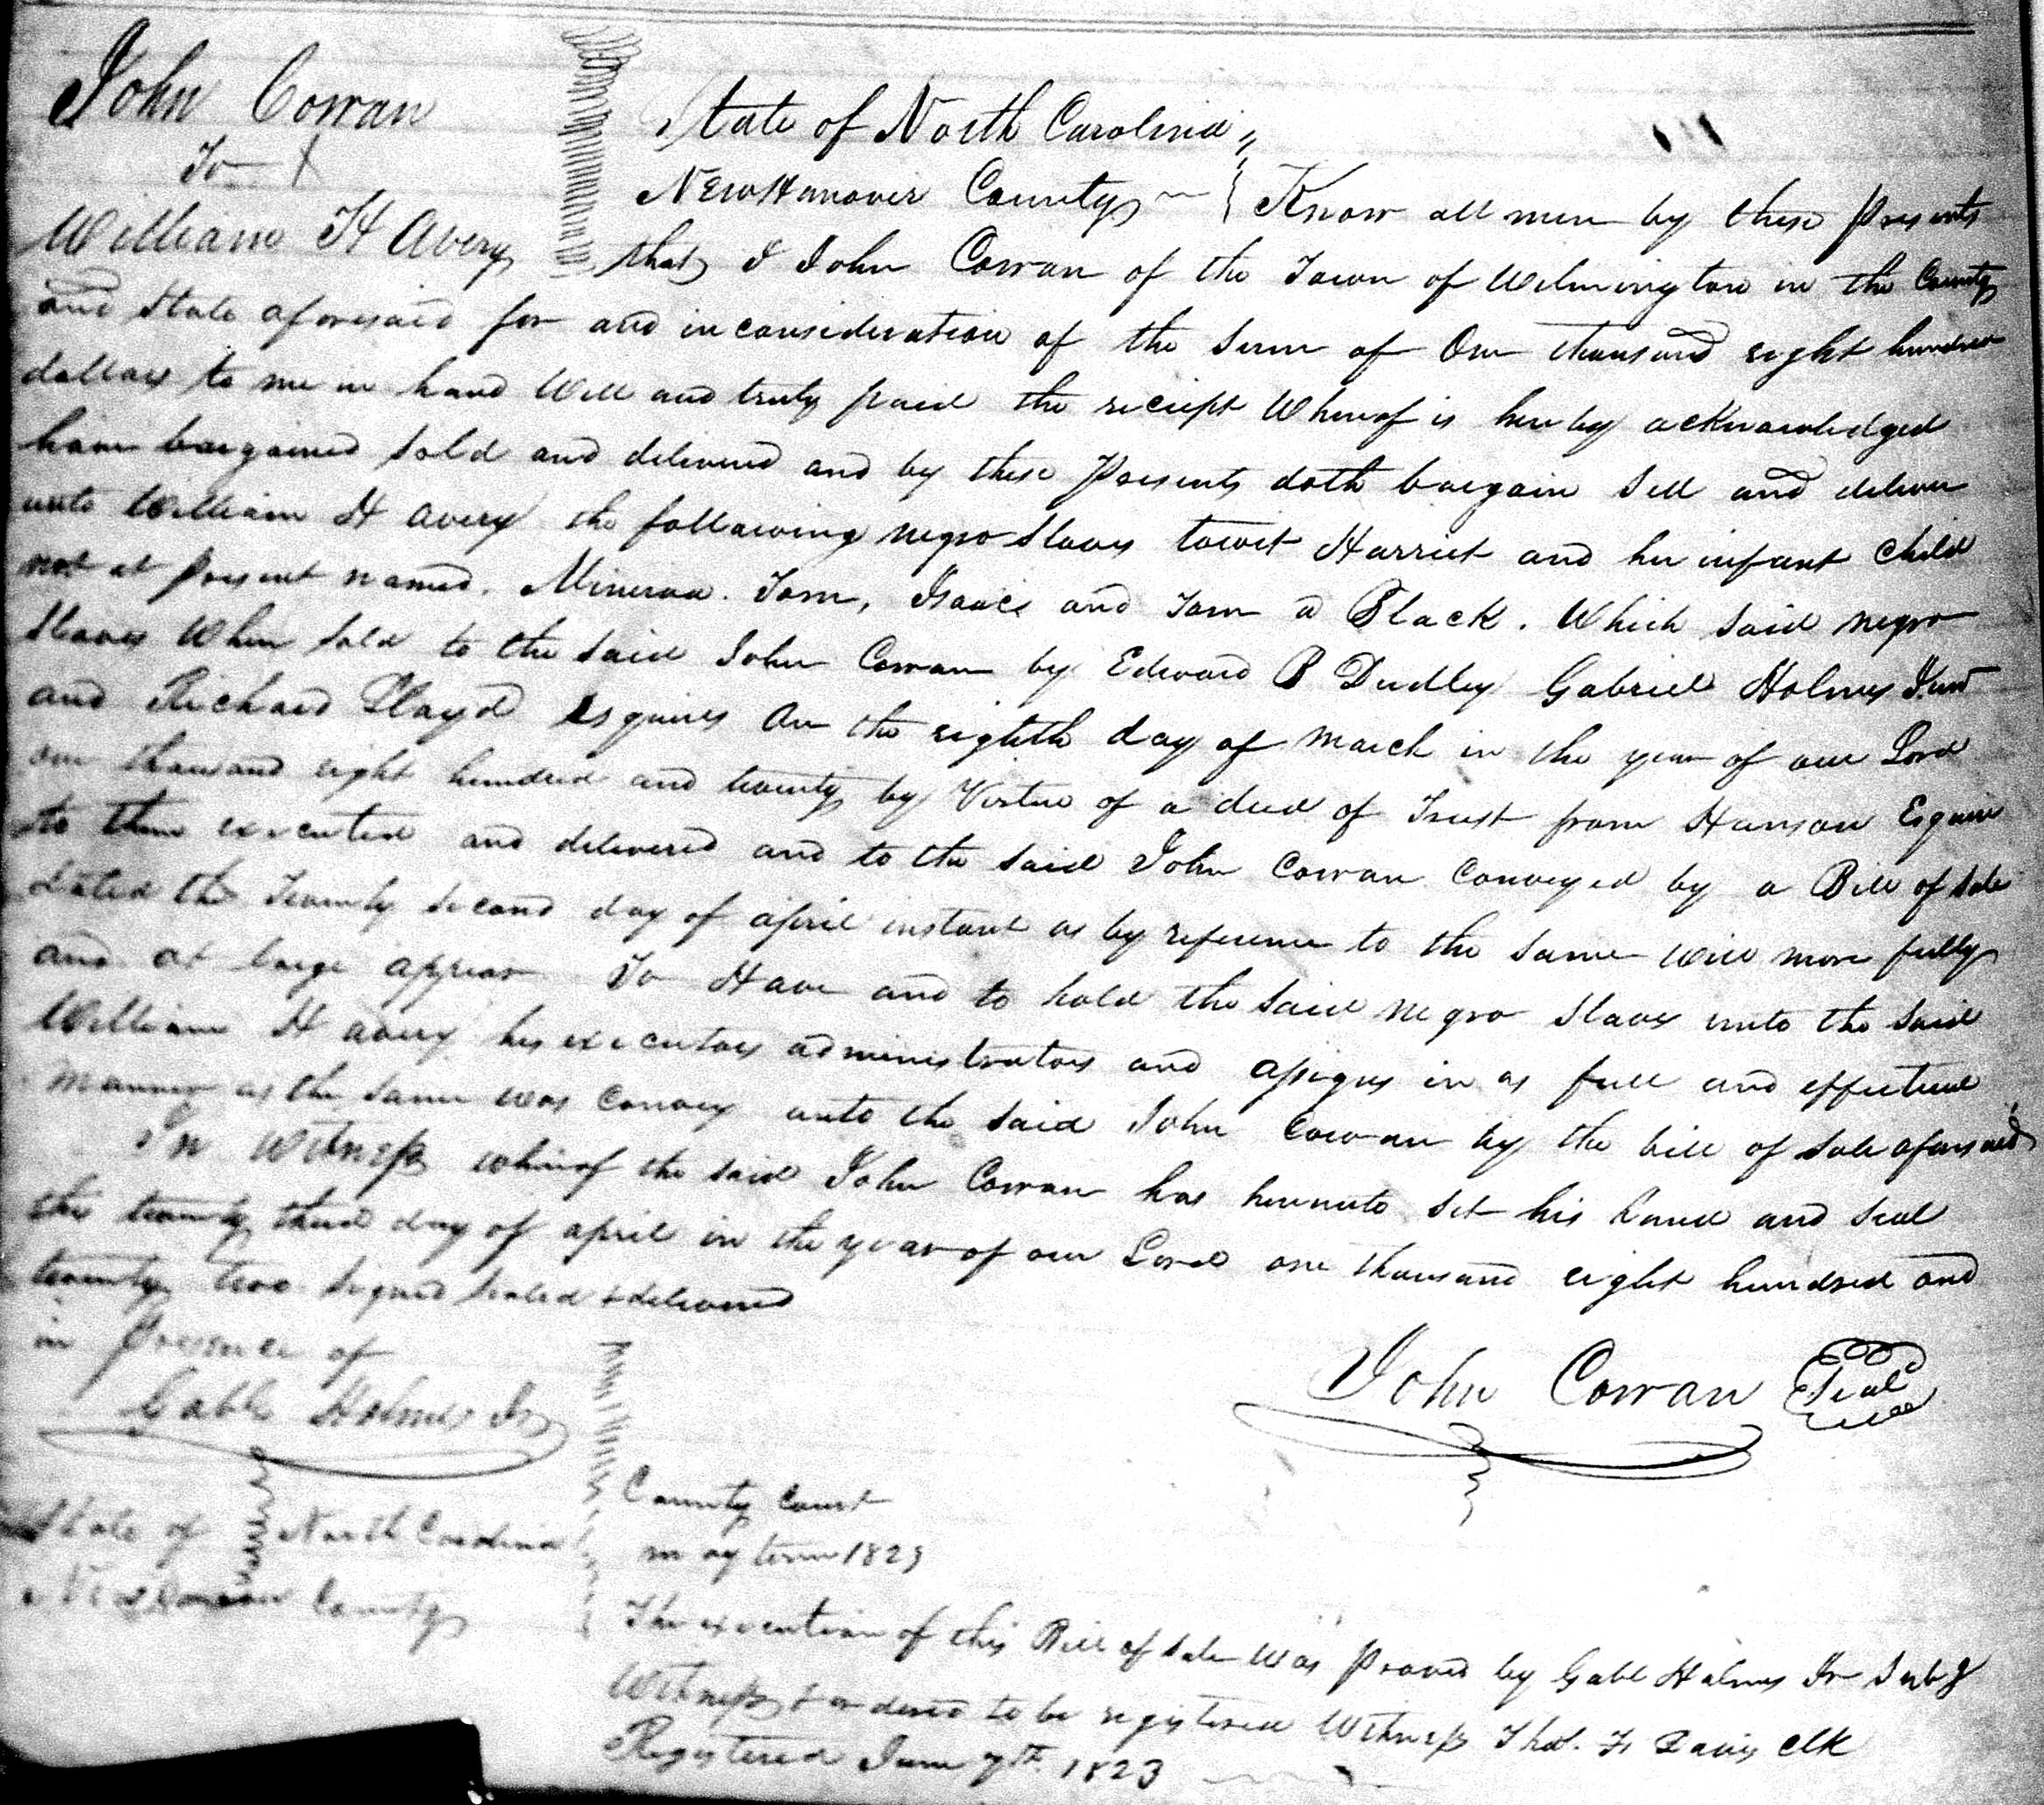 John Cowan
To
William H Avery
State of North Carolina
New Hanover County Know all men by these Presents
that I John Cowan of the Town of Wilmington in the County
and State aforesaid for and in consideration of the Sum of One thousand eight hundred
dollars to me in hand Well and truly paid the reciept Whereof is hereby acknowledged
have bargained Sold and delivered and by these Presents doth bargain Sell and deliver
unto William H avery the following negro Slaves towit Harriet and her infant Child
not at Present named. Minerva. Tom, Isaac and Tom a Black. Which Said negro
Slaves When Sold to the Said John Cowan by Edward B Dudley Gabriel Holmes Junr
and Richard Lloyd Esquires On the eighth day of March in the year of our Lord
one thousand eight hundred and twenty by Virtue of a deed of Trust from Hanson Esquire
to them executed and delivered and to the Said John Cowan Conveyed by a Bill of Sale
dated the Twenty Second day of april instant as by reference to the Same will more fully
and at large appear To Have and to hold the Said negro Slaves unto the Said
William H avery his executors administrators and assigns in as full and effectual
manner as the Same was Convey unto the Said John Cowan by the bill of Sale aforesaid
In Witness whereof the said John Cowan has hereunto Set his hand and Seal
the twenty third day of april in the year of our Lord one thousand eight hundred and
twenty two Signed Sealed & delivered
in Presence of
Gabl Holmes Jr
John Cowan Seal
State of North Carolina
New Hanover County
County Court
may term 1823
The execution of this Bill of Sale Was Proved by Gabl Holmes Jr Subg
Witness & ordered to be registered Witness Thos. F. Davis Clk
Registered June 7th 1823